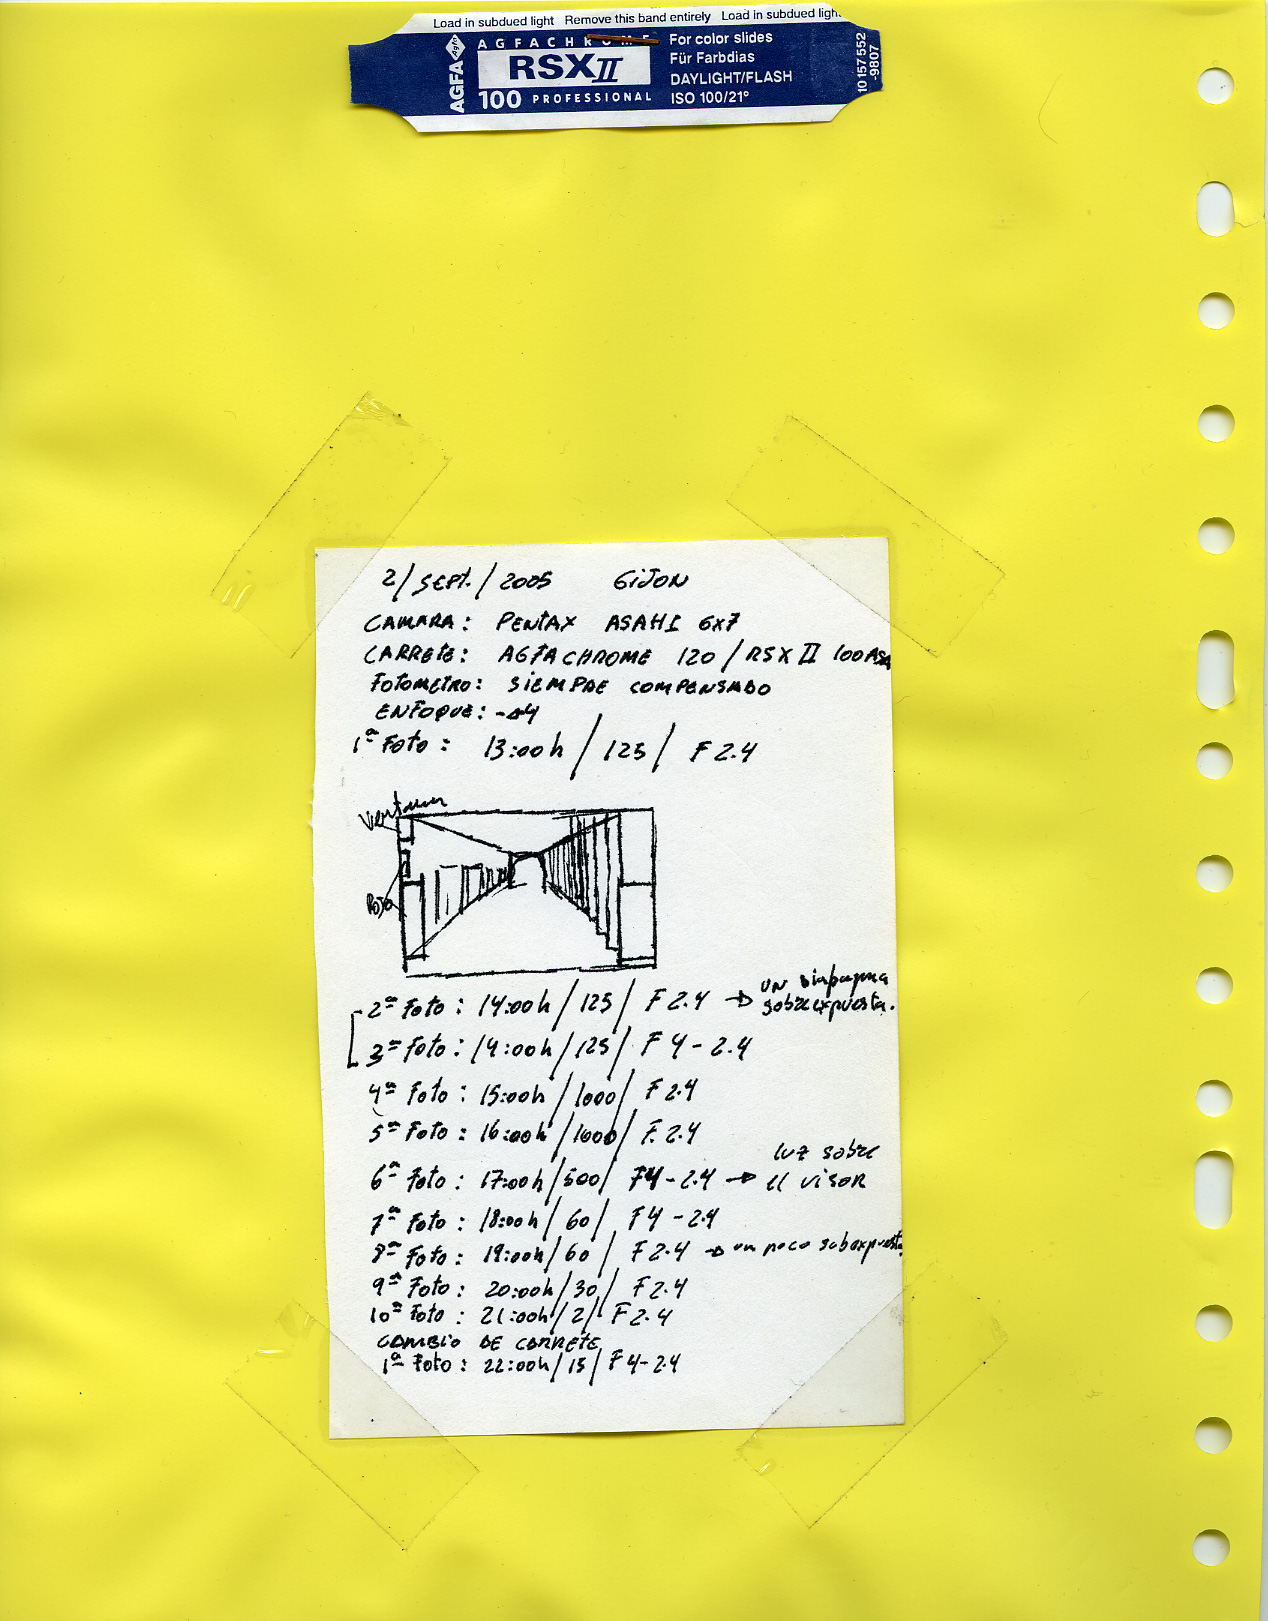 Load in subdued light Remove this band entirely Load in subdued light
AGFA Agfa
AGFACHROME
RSX II
100 PROFESSIONAL
For color slides
Für Farbdias
DAYLIGHT/FLASH
ISO 100/21°
10 157 552
-9807
2/SEPT./2005 GIJON
CAMARA: PENTAX ASAHI 6x7
CARRETE: AGFACHROME 120/RSX II 100ASA
FOTOMETRO: SIEMPRE COMPENSADO
ENFOQUE:
1ª FOTO: 13:00h/125/ F 2.4
Ventana
2ª FOTO: 14:00h/125/ F 2.4 → un diafragma
sobreexpuesta.
3ª FOTO: 14:00h/125/ F 4-2.4
4ª FOTO: 15:00h/1000/ F 2.4
5ª FOTO: 16:00h/1000/ F. 2.4
6ª FOTO: 17:00h/500/ F4-2.4 → luz sobre
el visor
7ª FOTO: 18:00h/60/ F4-2.4
8ª FOTO: 19:00h/60/ F 2.4 → un poco subexpuesta
9ª FOTO: 20:00h/30/ F 2.4
10ª FOTO: 21:00h/2/ F 2.4
CAMBIO DE CARRETE
1ª FOTO: 22:00h/15/ F 4-2.4